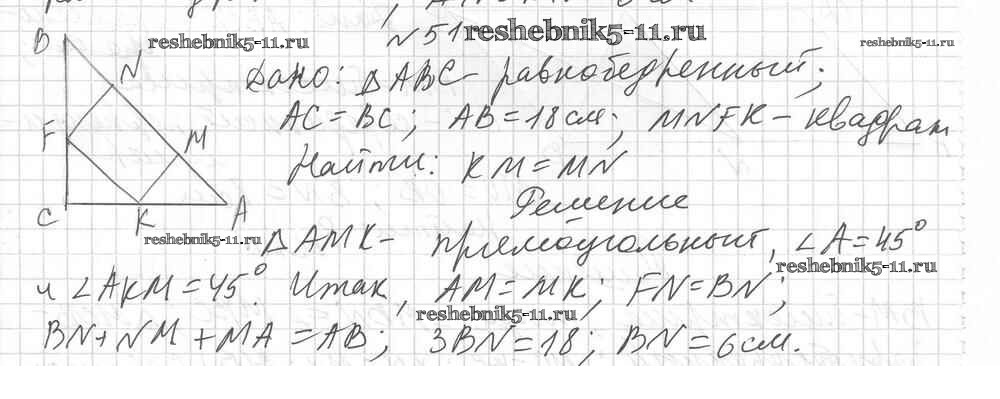 N 51
reshebnik5-11.ru
reshebnik5-11.ru
reshebnik5-11.ru
B
N
F
M
C
K
A
Дано: △ABC – равнобедренный;
AC = BC; AB = 18 см; MNFK – квадрат
Найти: KM = MN
Решение
reshebnik5-11.ru
△AMK – прямоугольный, ∠A = 45°
reshebnik5-11.ru
и ∠AKM = 45°. Итак, AM = MK; FN = BN;
reshebnik5-11.ru
BN + NM + MA = AB; 3BN = 18; BN = 6 см.